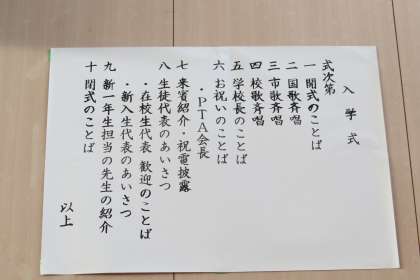 入学式
式次第
一 開式のことば
二 国歌斉唱
三 市歌斉唱
四 校歌斉唱
五 学校長のことば
六 お祝いのことば
・PTA会長
七 来賓紹介・祝電披露
八 生徒代表のあいさつ
・在校生代表 歓迎のことば
・新入生代表のあいさつ
九 新一年生担当の先生の紹介
十 閉式のことば
以上